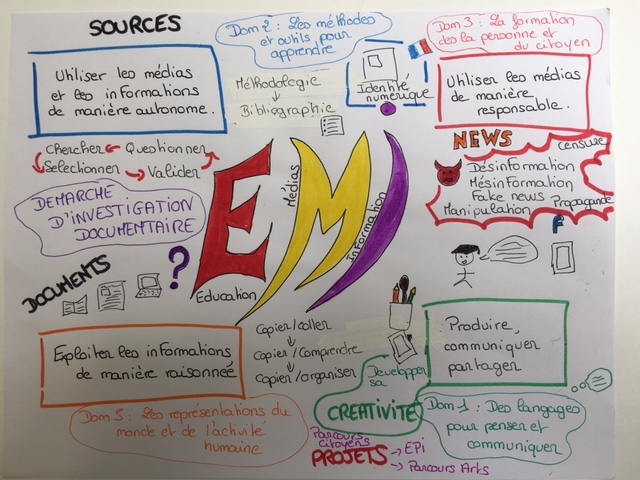 SOURCES
Utiliser les médias
et les informations
de manière autonome.
Dom 2 : Les méthodes
et outils pour
apprendre
Dom 3 : La formation
de la personne et
du citoyen
Méthodologie
Bibliographie
Identité
numérique
Utiliser les médias
de manière
responsable.
Chercher Questionner
Selectionner Valider
DEMARCHE
D'INVESTIGATION
DOCUMENTAIRE
NEWS
censure
Désinformation
Mésinformation
Fake news
Manipulation
Propagande
f
EMI
Education
Médias
Information
DOCUMENTS
?
Exploiter les informations
de manière raisonneé
Copier/coller
Copier/Comprendre
Copier/organiser
Produire,
communiquer
partager
Developper
sa
CREATIVITE
Dom 5 : Les représentations du
monde et de l'activité
humaine
Dom 1 : Des langages
pour penser et
communiquer
Parcours
citoyens
PROJETS → EPI
→ Parcours Arts